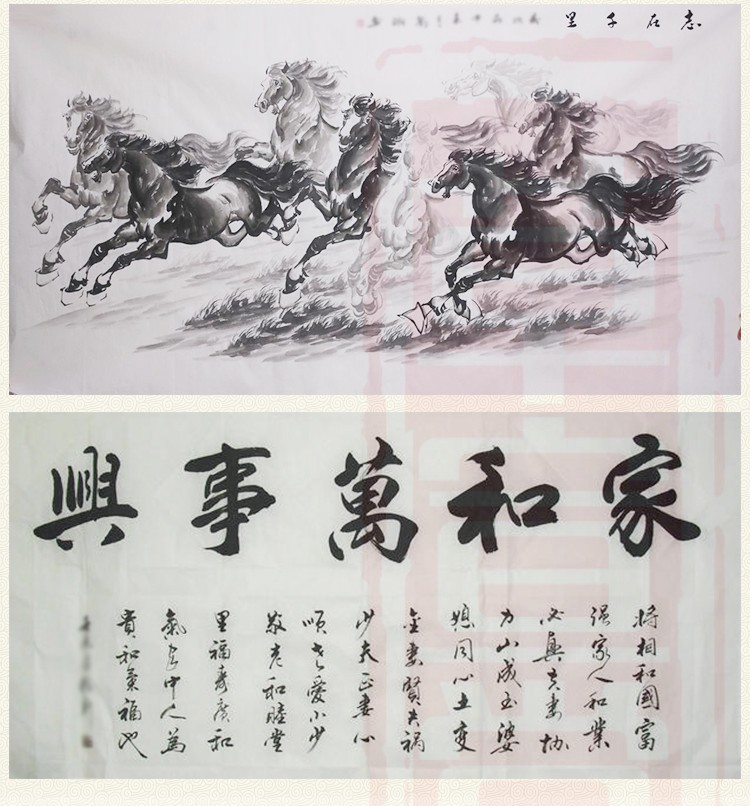 志在千里
家和萬事興
將相和國富
强家人和業
必興夫妻協
力山成玉婆
媳同心土变
金妻賢夫禍
少夫正妻心
順老愛小少
敬老和睦堂
里福壽廣和
氣中人為
貴和氣福也